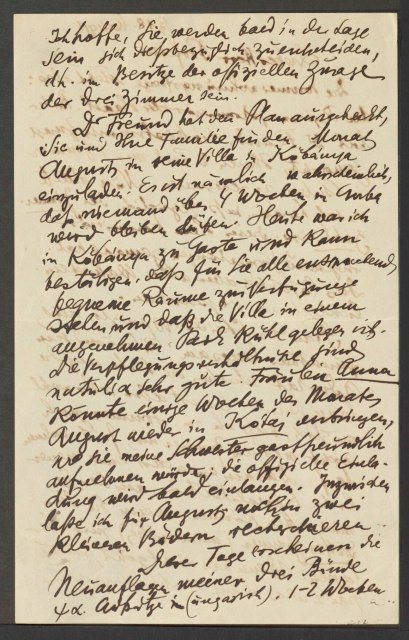 Ich hoffe, Sie werden bald in der Lage
sein sich diesbezüglich zu entscheiden,
dh. im Besitze der offiziellen Zusage
der drei Zimmer sein.
Dr Freund hat den Plan ausgeheckt,
Sie und Ihre Familie für den Monat
Augusts in seine Villa in Kőbánya
einzuladen. Es ist nämlich wahrscheinlich,
daß niemand über 4 Wochen in
wird bleiben dürfen. Heute war ich
in Kőbánya zu Gaste und kann
bestätigen, daß für Sie alle entsprechend
bequeme Räume zur Verfügung
stehen und daß die Villa in einem
angenehmen Park kühl gelegen ist.
Die Verpflegungsverhältnisse sind
natürlich sehr gute. Fräulein Anna
könnte einige Wochen des Monates
August wieder in Kótaj verbringen,
wo sie meine Schwester gastfreundlich
aufnehmen würde; die offizielle Einla-
dung wird bald einlangen. Inzwischen
laße ich für Augusts noch in zwei
kleineren Bädern recherchieren.
Dieser Tage erscheinen die
Neuauflagen meiner drei Bände
 Aufsätze in (ungarisch). 1-2 Wochen